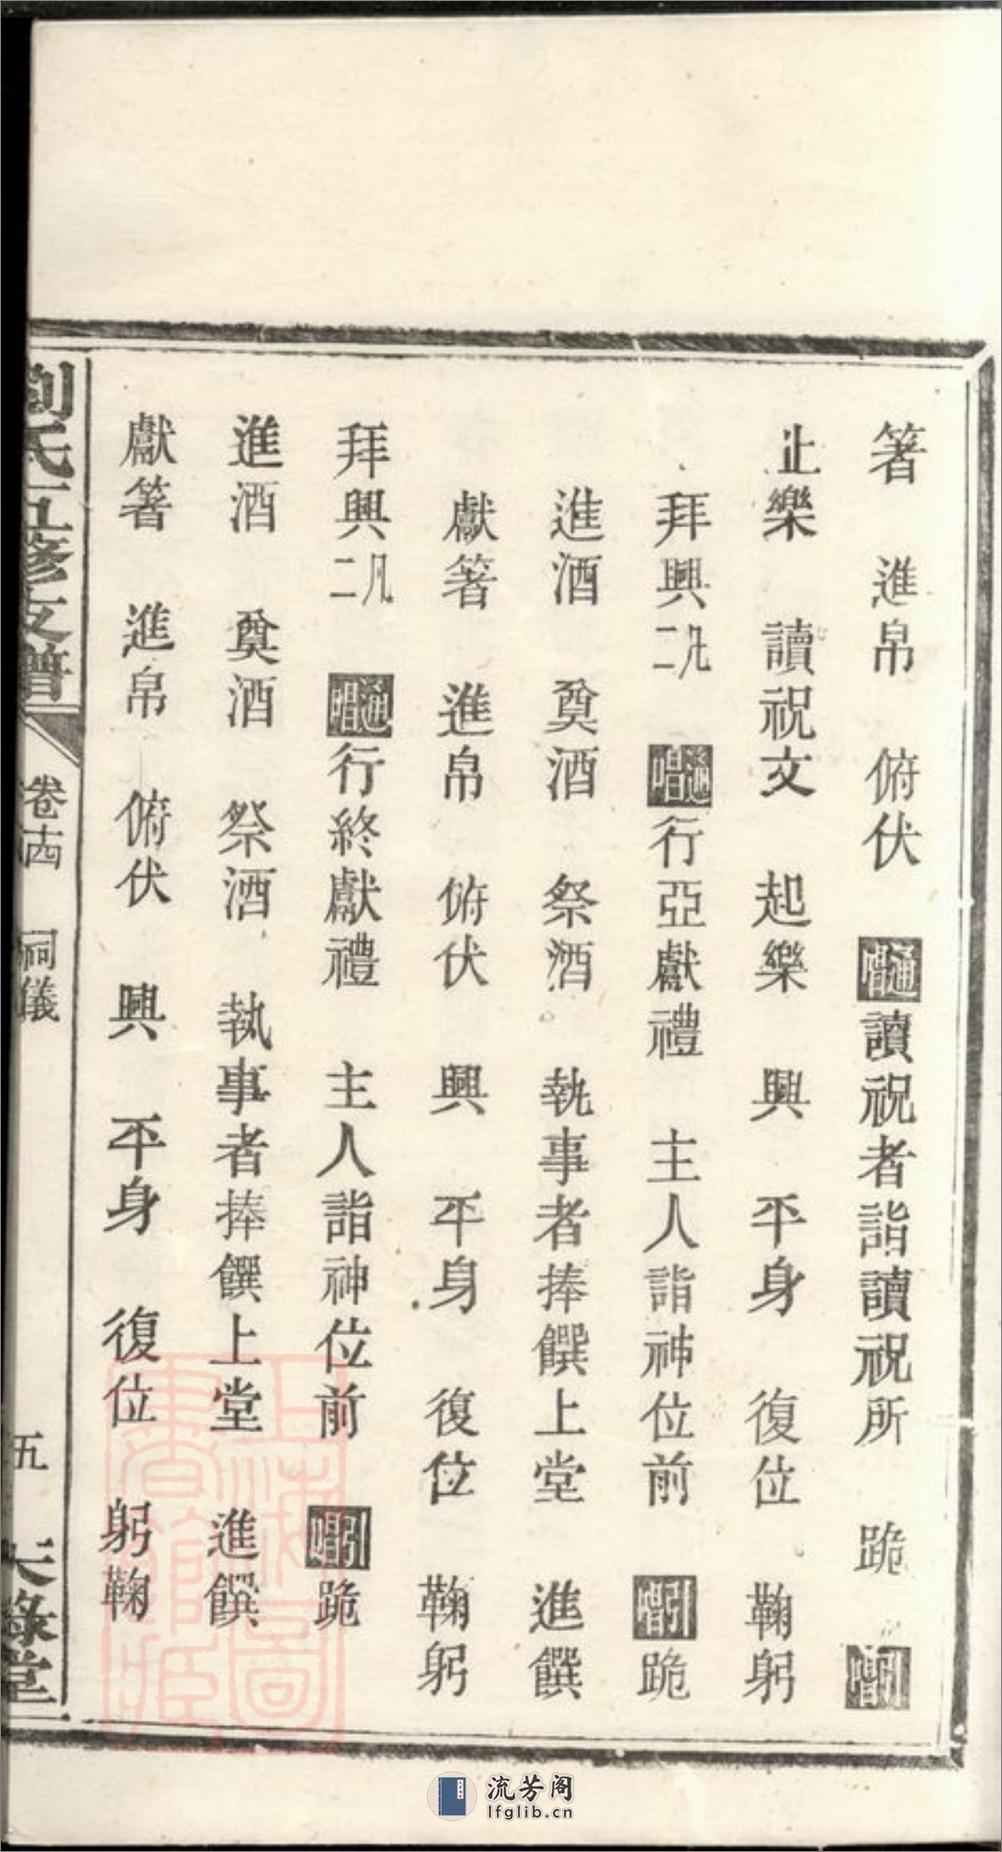 箸　進帛　俯伏　通唱讀祝者詣讀祝所　跪　引唱
止樂　讀祝文　起樂　興　平身　復位　鞠躬
拜興凡二　通唱行亞獻禮　主人詣神位前　引唱跪
進酒　奠酒　祭酒　執事者捧饌上堂　進饌
獻箸　進帛　俯伏　興　平身　復位　鞠躬
拜興凡二　通唱行終獻禮　主人詣神位前　引唱跪
進酒　奠酒　祭酒　執事者捧饌上堂　進饌
獻箸　進帛　俯伏　興　平身　復位　躬鞠
劉氏五修支譜　卷十四　祠儀　五　天祿堂
上海圖書館藏
流芳阁
lfglib.cn